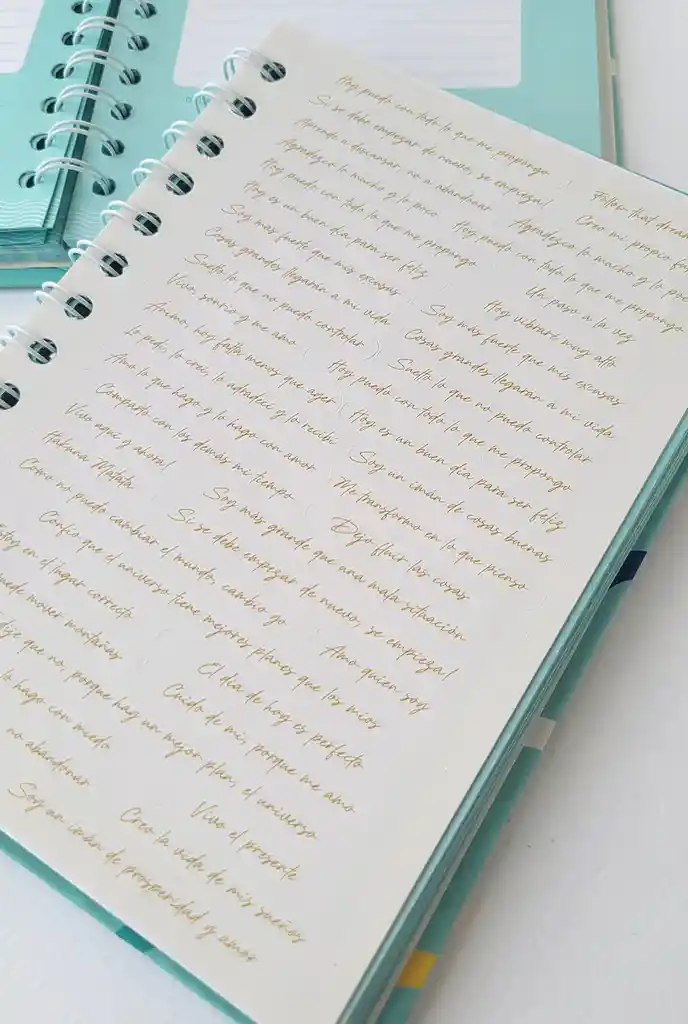 Hoy puedo con todo lo que me propongo Follow that dream
Si se debe empezar de nuevo, se empieza! Creo mi propio
Aprendo a descansar, no a abandonar Agradezco lo mucho y lo
Agradezco lo mucho y lo poco Hoy puedo con todo lo que me propongo
Hoy puedo con todo lo que me propongo Un paso a la vez
Hoy es un buen día para ser feliz Hoy vibraré muy alto
Soy más fuerte que mis excusas Soy más fuerte que mis excusas
Cosas grandes llegarán a mi vida Cosas grandes llegarán a mi vida
Suelto lo que no puedo controlar Suelto lo que no puedo controlar
Vivo, sonrío y me amo Hoy puedo con todo lo que me propongo
Animo, hoy falta menos que ayer Hoy es un buen día para ser feliz
Lo pedí, lo creí, lo agradecí y lo recibí Soy un imán de cosas buenas
Amo lo que hago y lo hago con amor Me transformo en lo que pienso
Comparto con los demás mi tiempo Dejo fluir las cosas
Vivo aquí y ahora! Soy más grande que una mala situación
Hakuna Matata Si se debe empezar de nuevo, se empieza!
Como no puedo cambiar el mundo, cambio yo Amo quien soy
Confío que el universo tiene mejores planes que los míos
en el lugar correcto El día de hoy es perfecto
mover montañas Cuido de mi, porque me amo
que no, porque hay un mejor plan, el universo
lo hago con miedo Vivo el presente
no abandonar Creo la vida de mis sueños
Soy un imán de prosperidad y amor